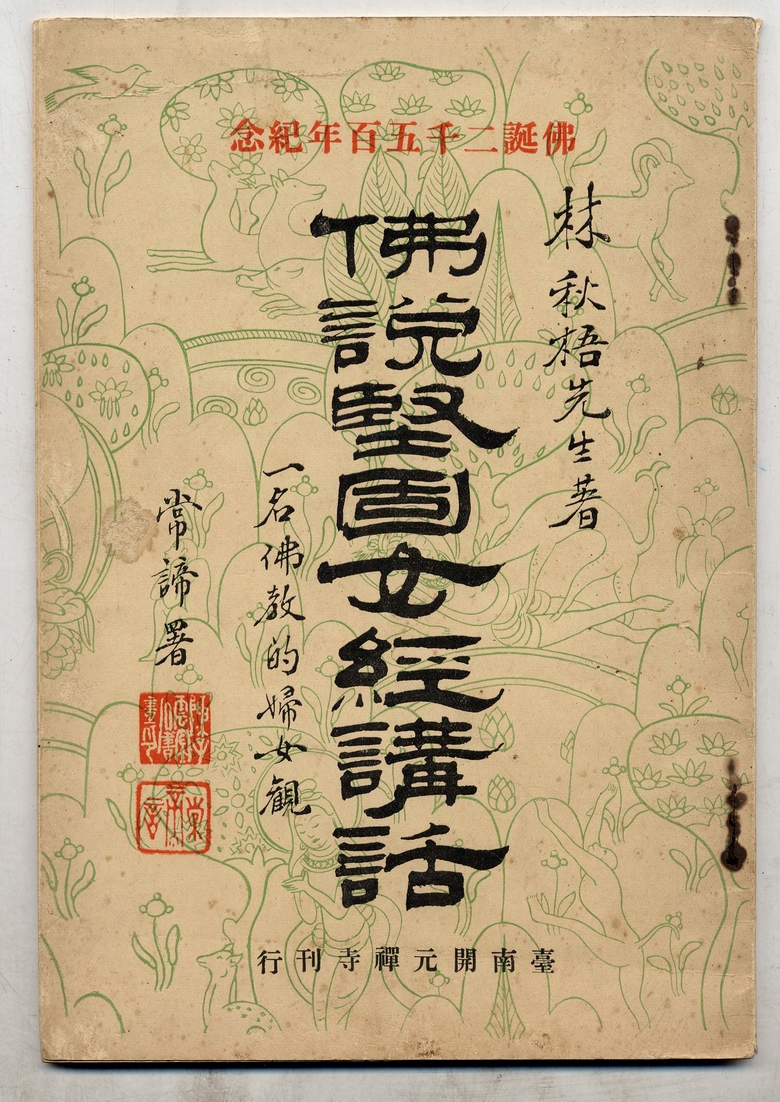 佛誕二千五百年紀念
林秋梧先生著
佛說堅固女經講話
一名佛教的婦女觀
常諦署
臺南開元禪寺刊行